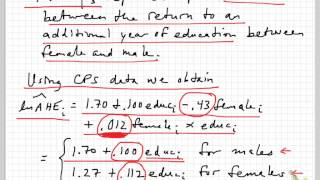 between the return to an
additional year of education between
female and male.
Using CPS data we obtain
lnAHEi = 1.70 + .100 educi - .43 femalei
+ .012 femalei x educi
= { 1.70 + .100 educi for males ←
1.27 + .112 educi for females ←